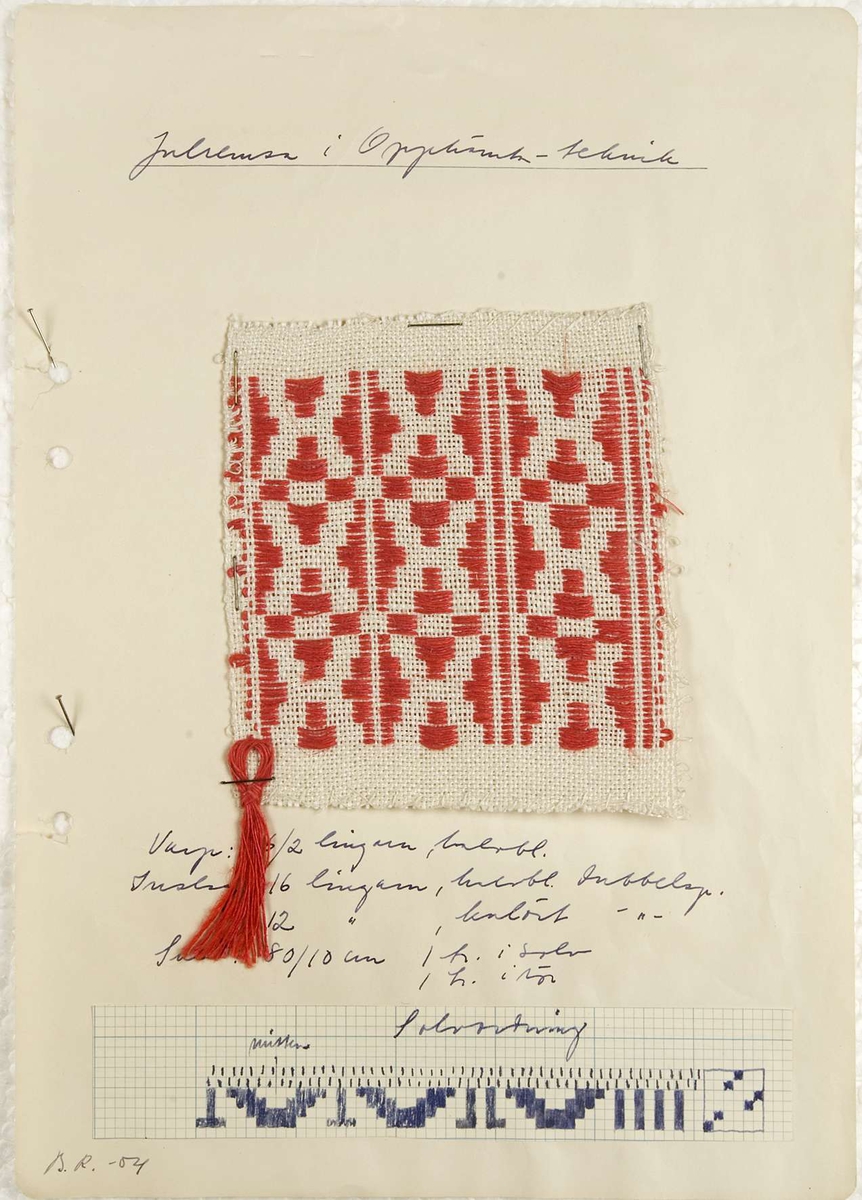 Julremsa i Opphämta-teknik
Varp: 6/2 lingarn, halvbl.
16 lingarn, halvbl. dubbelsp.
12 " , kulört -"-
80/10 cm 1 tr. i solv
1 tr. i rör
Solvordning
mitten
B.R. -54